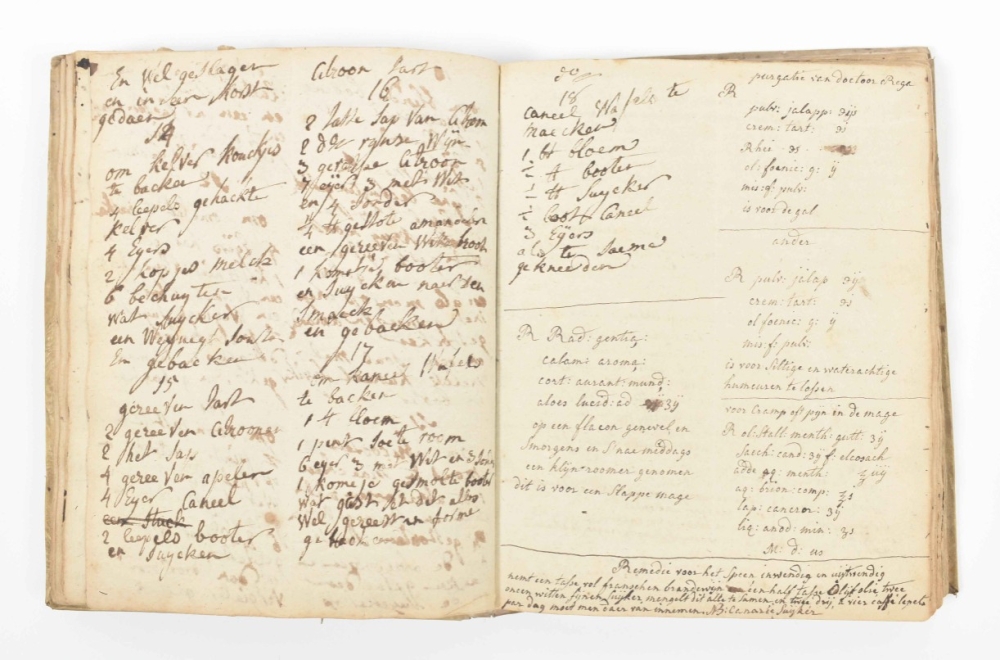 En wel geslagen
en in een korst
gedaen
14
om kelver kouckjes
te backen
4 leepels gehackte
kelver
4 Eyers
2 kopjes melck
6 beschuyten
wat suycker
een weynigh sout
En gebacken
15
gereeven tart
2 gereeven citroonen
2 het sap
4 gereeven apelen
4 Eyer Caneel
een stuck
2 leepels booter
en suycken
citroon tart
16
2 tasse sap van citron
2 dito rynse wijn
3 gereeve citroon
7 eyers 3 met wit
en 4 sonder
1/4 tt gestote amandelen
een gereeven witte broot
1 kometje booter
en suycken naer den
smaeck
en gebacken
17
om kaneel wafels
te backen
1 tt bloem
1 pint soete room
6 eyer 3 met wit en 3 sonder
1 komeje gesmolte booter
wat gist en dit alles
wel gereert in forme
gebacken
18
caneel wafels te
maecken
1 tt bloem
1/2 tt booter
1/2 tt suycker
1/2 loot Caneel
3 Eyers
alle te saeme
gekneeden
R Rad: gentia:
calam: aroma:
cort: aurant: mund:
aloes lucid: ad ʒij
op een flacon genevel en
smorgens en s'nae middags
een klijn roomer genomen
dit is voor een slappe mage
purgatie van doctoor Rega
R
pulv: jalapp: ʒij
crem: tart: ʒs
Rhei ʒs
ol: foenic: g: ij
mis: f: pulv:
is voor de gal
ander
R pulv: jalap ʒij
crem: tart: ʒs
ol foenic: g: ij
mis: f: pulv:
is voor siltige en waterachtige
humeuren te lossen
voor Cramp oft pyn in de mage
R ol: stall: menth: gutt: ʒij
sacch: cand: ʒij f: eleosach
adde aq: menth: ʒiiij
aq: brion: comp: ʒs
lap: cancror: ʒij
liq: anod: min: ʒs
M: d: uo
Remedie voor het Speen inwendig en uijtwendig
nemt een tasse vol franschen brandewyn een half tasse Olifolie twee
oncen witten fijnen suijker mengelt dit alle te samen en twee drij, a vier caffe lepels
par dag moet men daer van innemen. NB: Canarie Suijker